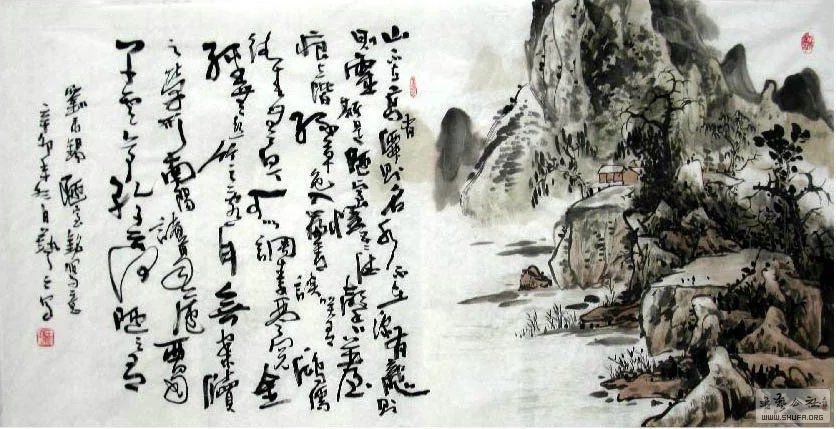 山不在高有僊則名水不在深有龍則
則靈斯是陋室惟吾德馨苔
痕上階綠草色入簾青談笑有鴻儒
往来無白丁可以調素琴閱金
經無絲竹之亂耳無案牘
之勞形南陽諸葛廬西蜀
子雲亭孔子云何陋之有
劉禹錫陋室銘寫意
辛卯年秋月
WWW.SHUFA.ORG